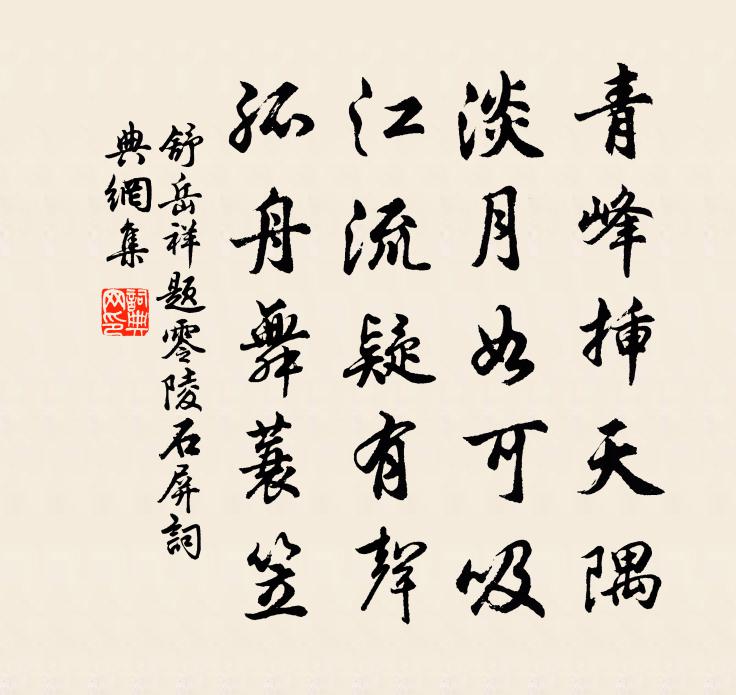 青峰挿天隅
淡月如可吸
江流疑有聲
孤舟舞蓑笠
舒岳祥題零陵石屏詞
典網集
詞典
网印